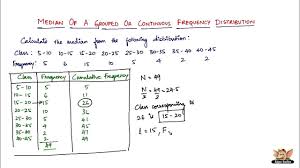 MEDIAN OF A GROUPED OR CONTINUOUS FREQUENCY DISTRIBUTION
Calculate the median from the following distribution:
Class : 5-10 10-15 15-20 20-25 25-30 30-35 35-40 40-45
Frequency: 5 6 15 10 5 4 2 2
Class Frequency Cumulative Frequency
5-10 5 5
10-15 6 11
15-20 15 26
20-25 10 36
25-30 5 41
30-35 4 45
2 47
2 49
49
N = 49
N/2 = 49/2 = 24.5
Class corresponding to
26 is 15-20
l = 15, F